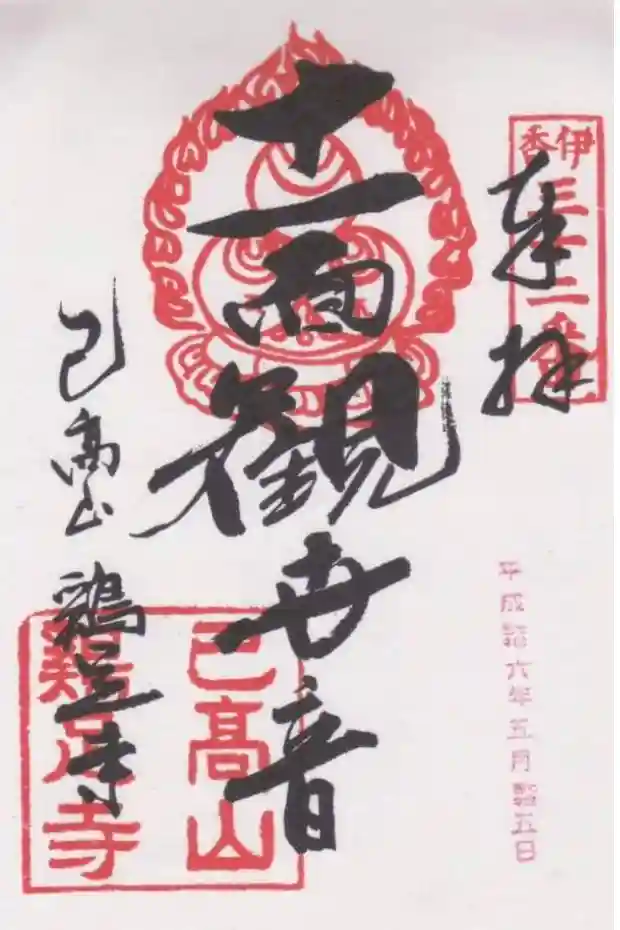 伊香
三十二番
奉拝
十一面観世音
己高山 鶏足寺
己高山
鶏足寺
平成 六年五月 五日